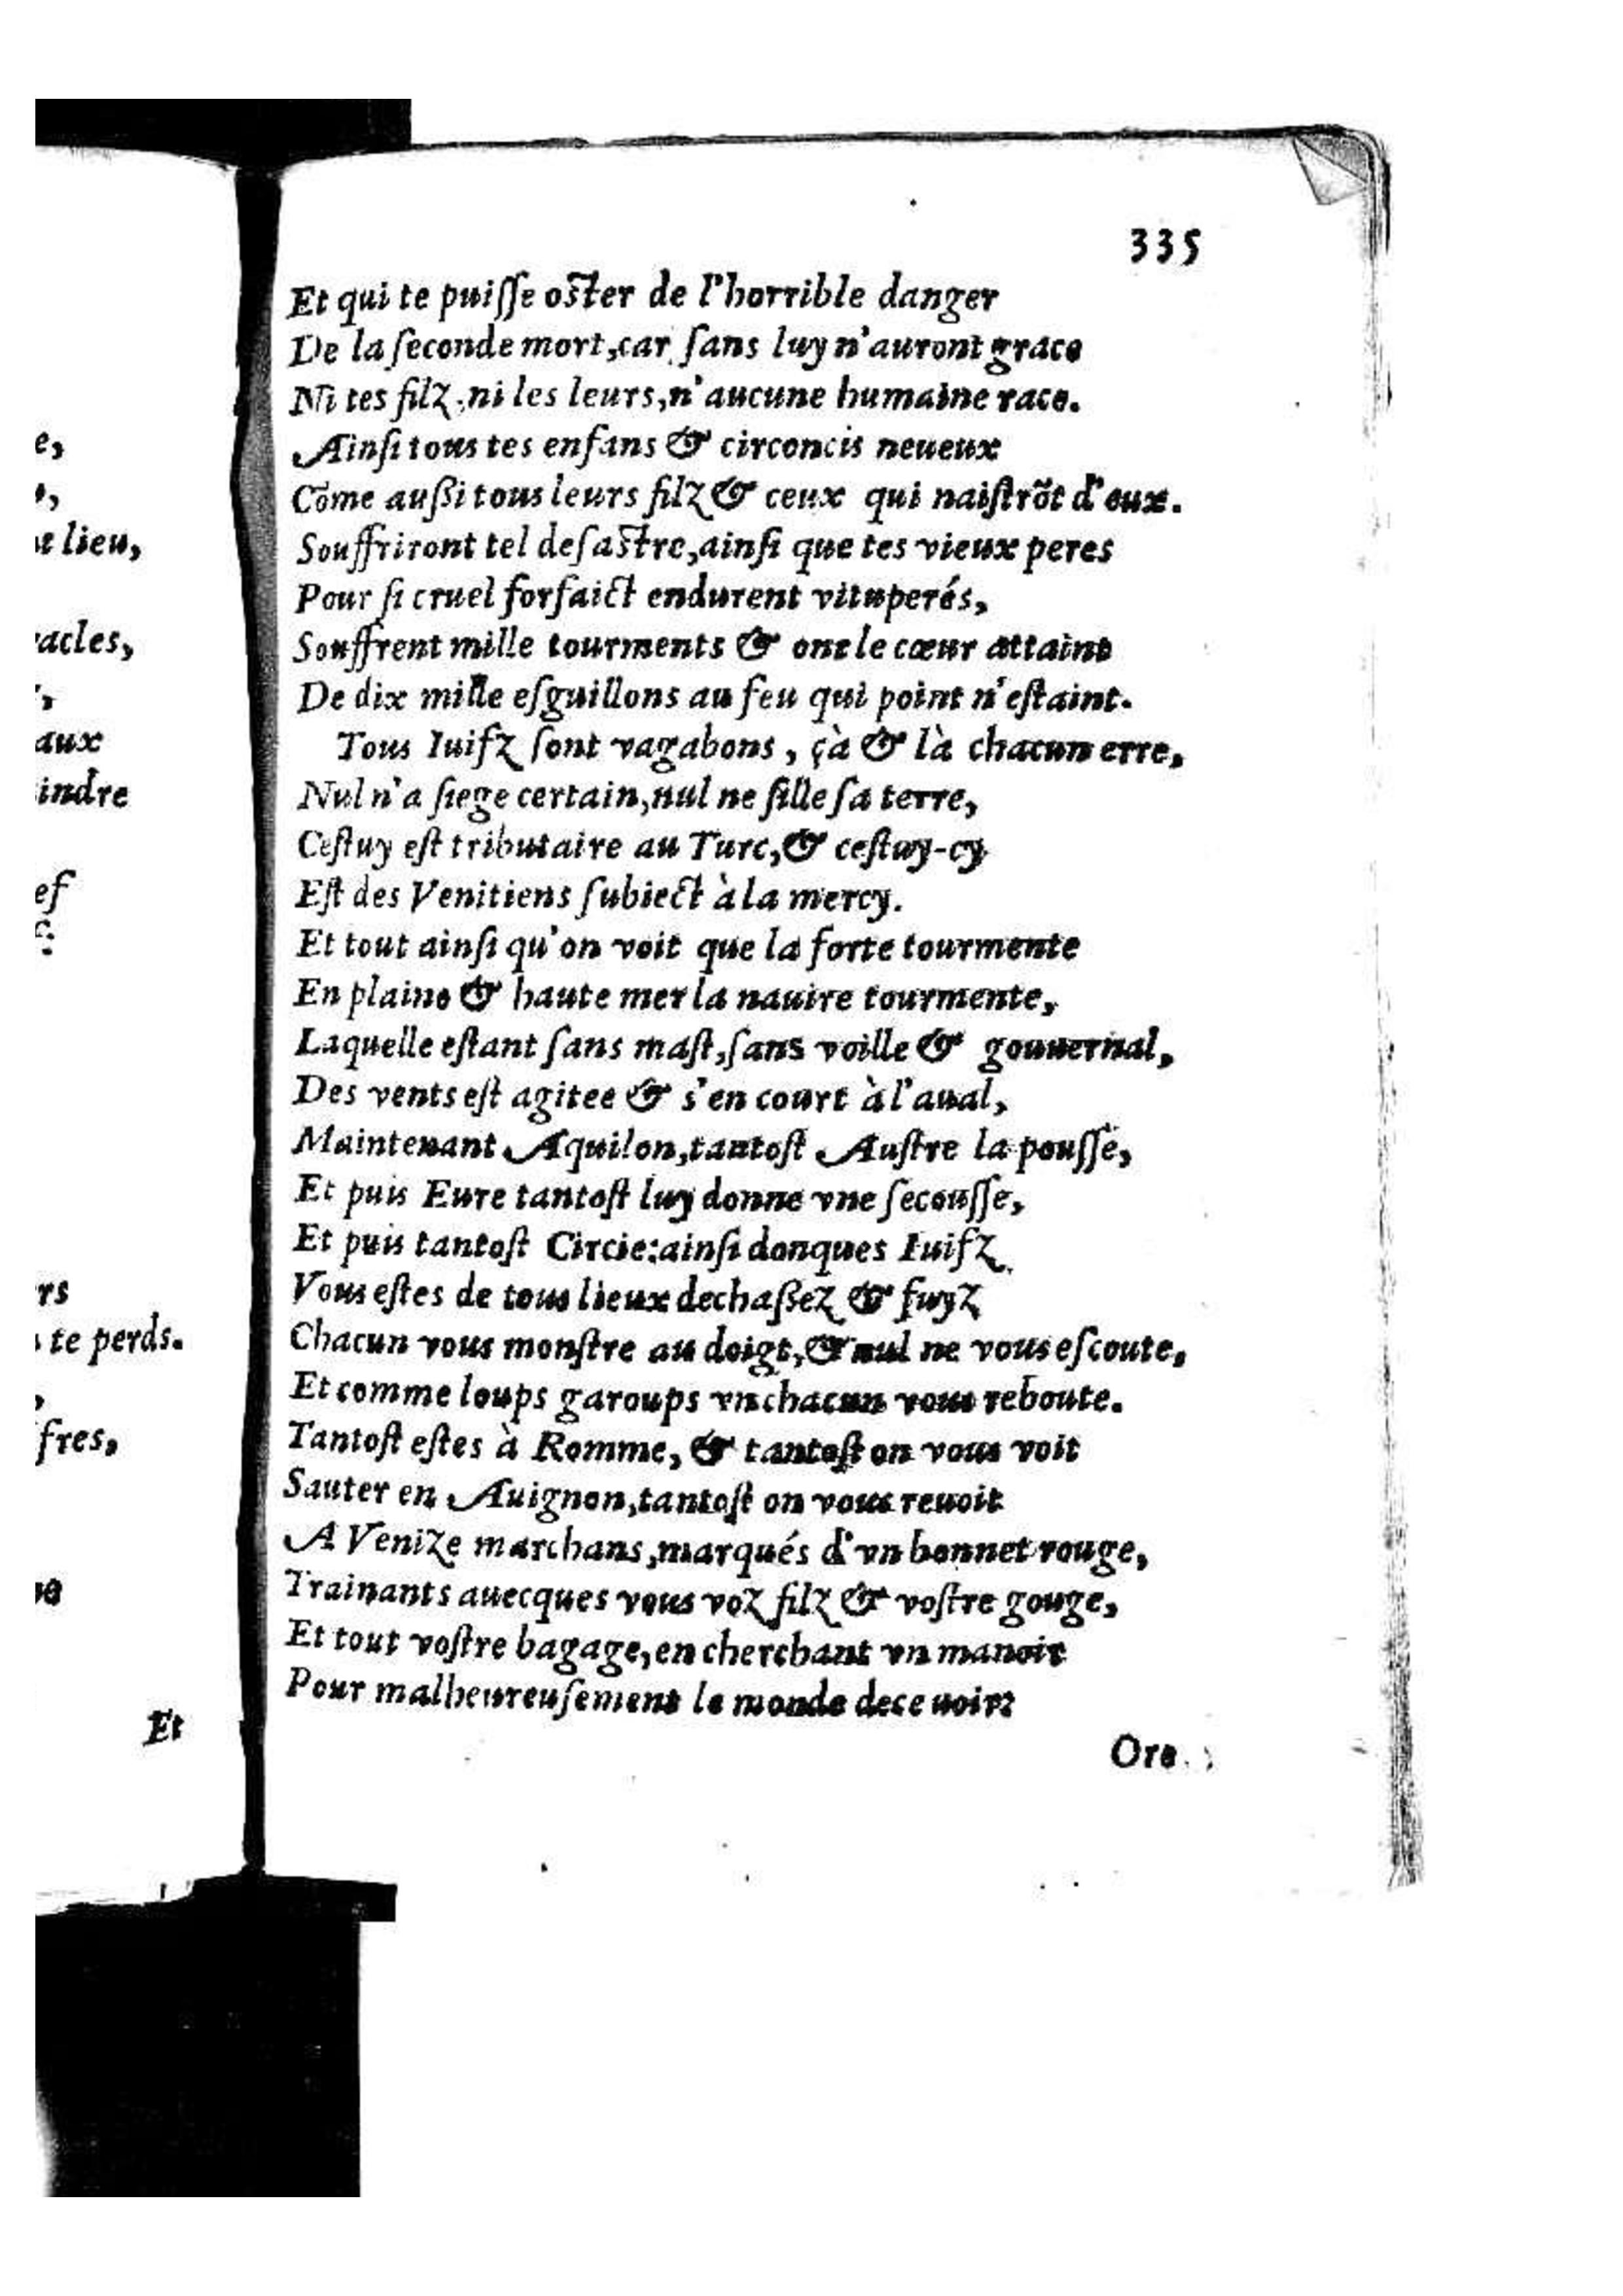 335
Et qui te puiſſe oſter de l'horrible danger
De la ſeconde mort, car ſans luy n'auront grace
Ni tes filz, ni les leurs, n'aucune humaine race.
Ainſi tous tes enfans & circoncis neueux
Cõme außi tous leurs filz & ceux qui naiſtrõt d'eux.
Souffriront tel deſaſtre, ainſi que tes vieux peres
Pour ſi cruel forfaict endurent vituperés,
Souffrent mille tourments & ont le cœur attaint
De dix mille eſguillons au feu qui point n'eſtaint.
Tous Iuifz ſont vagabons, çà & là chacun erre,
Nul n'a ſiege certain, nul ne ſille ſa terre,
Ceſtuy eſt tributaire au Turc, & ceſtuy-cy
Eſt des Venitiens ſubiect à la mercy.
Et tout ainſi qu'on voit que la forte tourmente
En plaine & haute mer la nauire tourmente,
Laquelle eſtant ſans maſt, ſans voille & gouuernal,
Des vents eſt agitee & s'en court à l'aual,
Maintenant Aquilon, tantoſt Auſtre la pouſſe,
Et puis Eure tantoſt luy donne vne ſecouſſe,
Et puis tantoſt Circie: ainſi donques Iuifz
Vous eſtes de tous lieux dechaßez & fuyz
Chacun vous monſtre au doigt, & nul ne vous eſcoute,
Et comme loups garoups vn chacun vous reboute.
Tantoſt eſtes à Romme, & tantoſt on vous voit
Sauter en Auignon, tantoſt on vous reuoit
A Venize marchans, marqués d'vn bonnet rouge,
Trainants auecques vous voz filz & voſtre gouge,
Et tout voſtre bagage, en cherchant vn manoir
Pour malheureuſement le monde deceuoir:
Ore
e,
lieu,
acles,
aux
indre
ef
rs
te perds.
fres,
Et